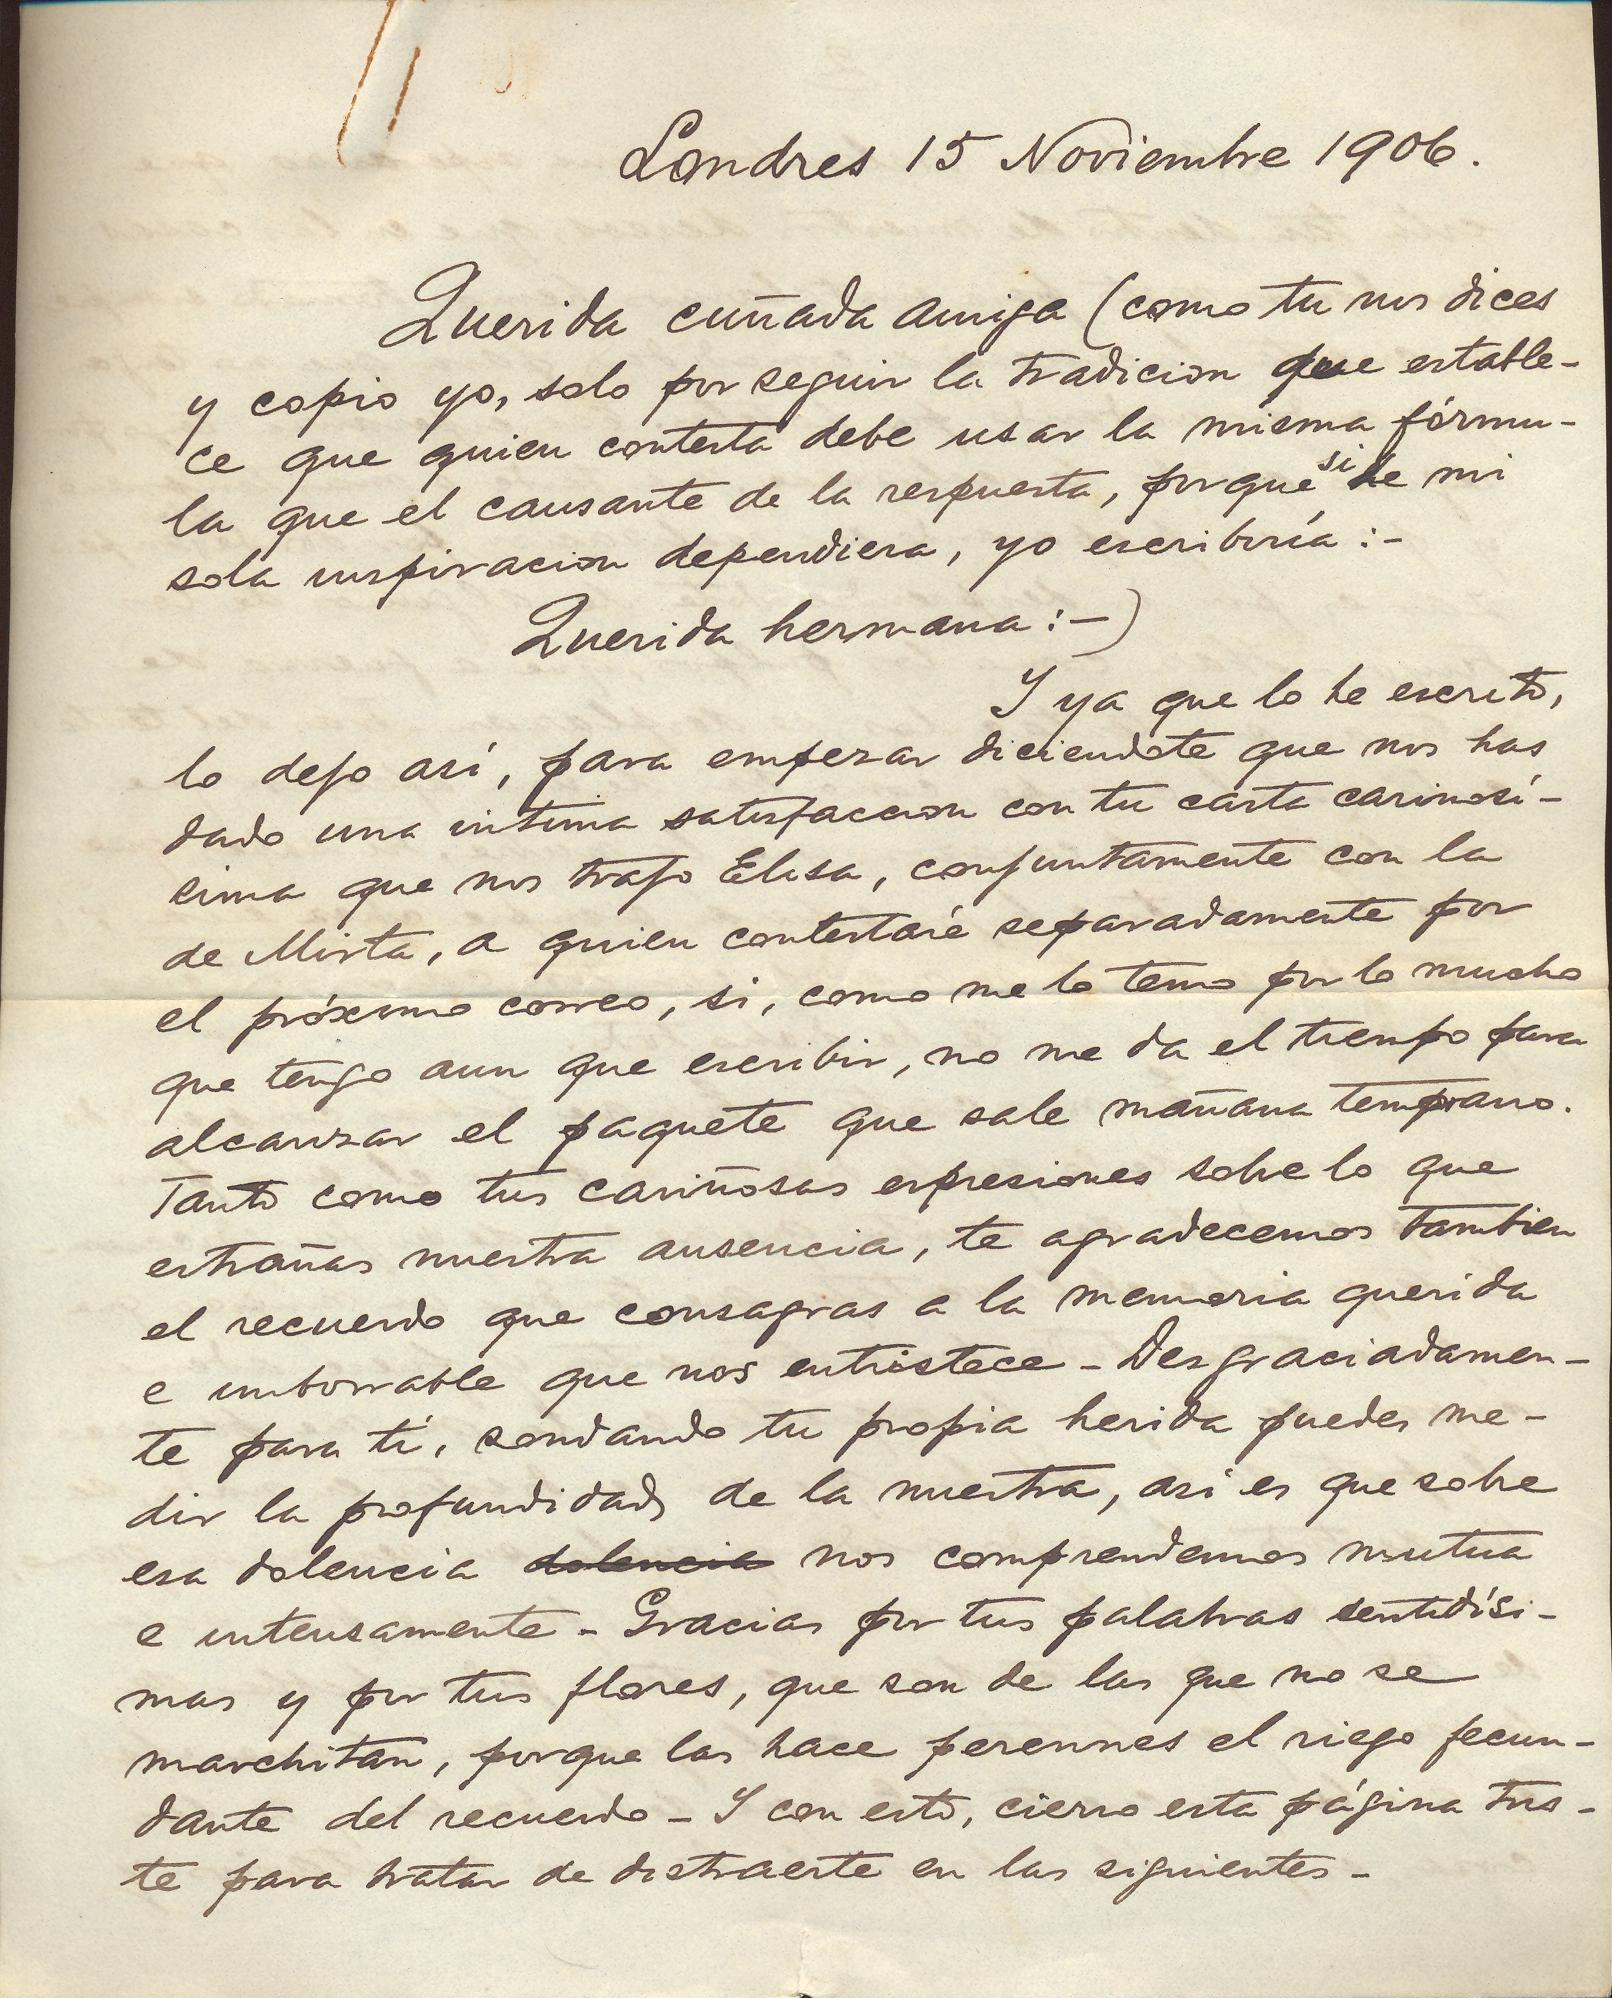 Londres 15 Noviembre 1906.
Querida cuñada amiga (como tu nos dices
y copio yo, solo por seguir la tradicion que estable-
ce que quien contesta debe usar la misma fórmu-
la que el causante de la respuesta, porque si de mi
sola inspiracion dependiera, yo escribiría :-
Querida hermana :-)
Y ya que lo he escrito,
lo dejo así, para empezar diciendote que nos has
dado una intima satisfaccion con tu carta cariñosí-
sima que nos trajo Elisa, conjuntamente con la
de Mirta, a quien contestaré separadamente por
el próximo correo, si, como me lo temo por lo mucho
que tengo aun que escribir, no me da el tiempo para
alcanzar el paquete que sale mañana temprano.
Tanto como tus cariñosas espresiones sobre lo que
estrañas nuestra ausencia, te agradecemos tambien
el recuerdo que consagras a la memoria querida
e imborrable que nos entristece - Desgraciadamen-
te para tí, sondando tu propia herida puedes me-
dir la profundidad de la nuestra, así es que sobre
esa dolencia dolencia nos comprendemos mutua
e intensamente - Gracias por tus palabras sentidísi-
mas y por tus flores, que son de las que no se
marchitan, porque las hace perennes el riego fecun-
dante del recuerdo - Y con esto, cierro esta página tris-
te para tratar de distraerte en las siguientes -